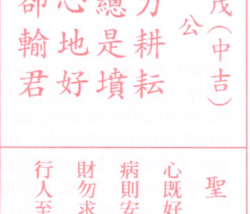 戊(中吉)
公
力耕耘
總是墳
心地好
卻輸君
聖
心既好
病則安
財勿求
行人至